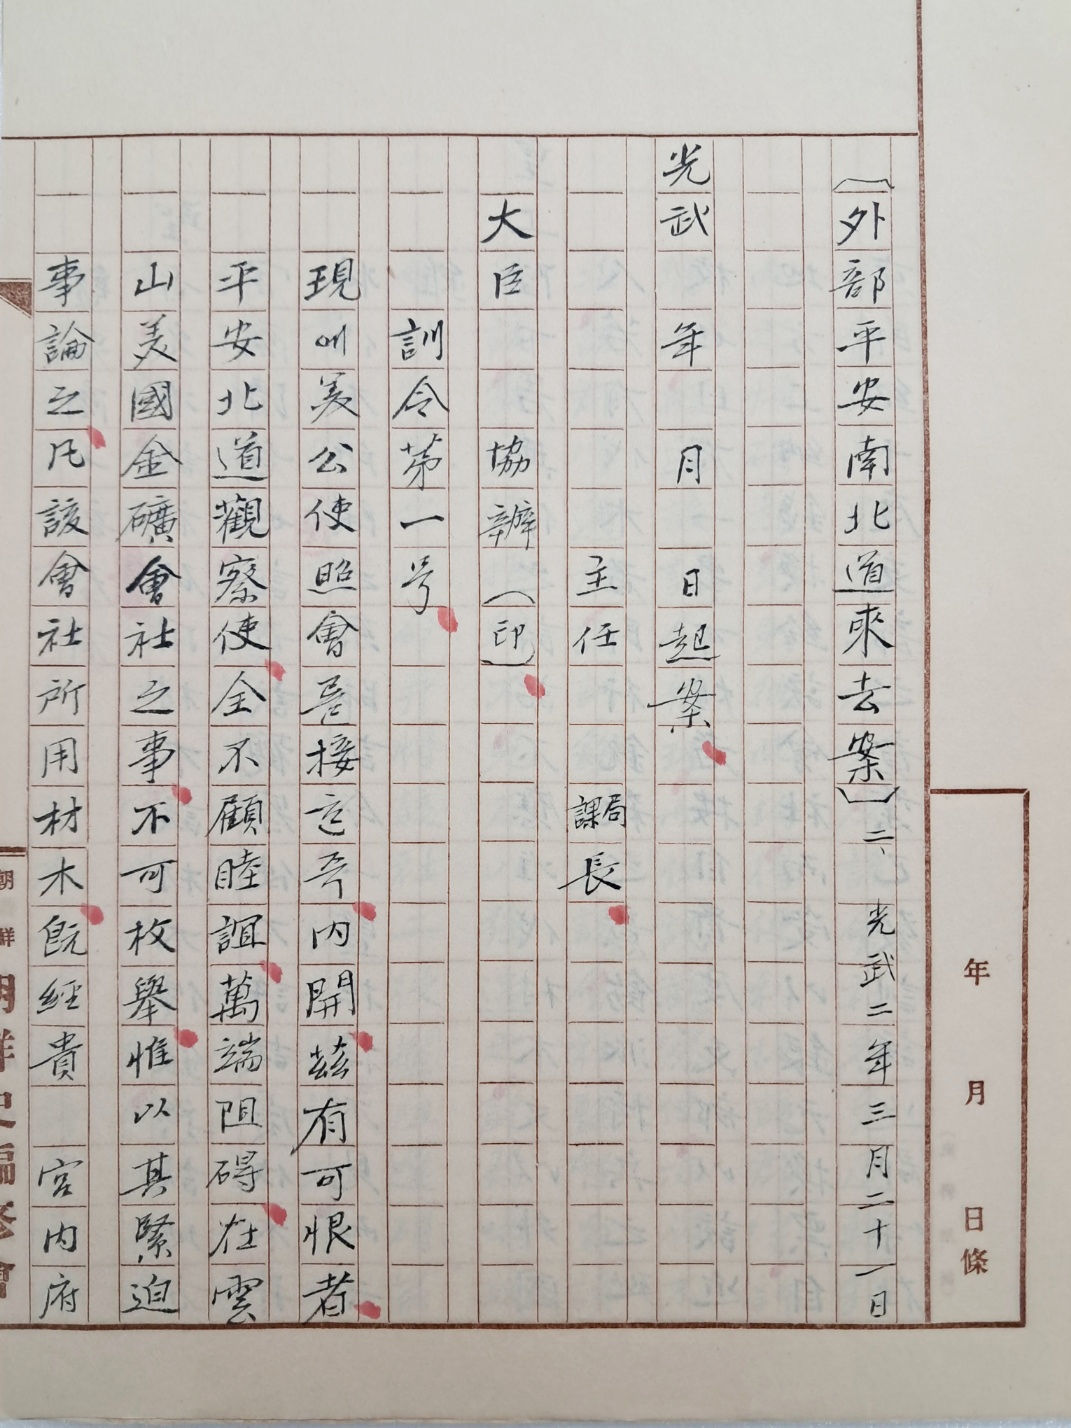 年 月 日條
(外部平安南北道來去案)二、光武二年三月二十一日
光武 年 月 日起案
主任 課局長
大臣 協辦(印)
訓令第一号
現에美公使照會를接한즉內開玆有可恨者
平安北道觀察使全不顧睦誼萬端阻碍在雲
山美國金礦會社之事不可枚擧惟以其緊迫
事論之凡該會社所用材木旣經貴 宮內府
朝鮮
朝鮮史編修會